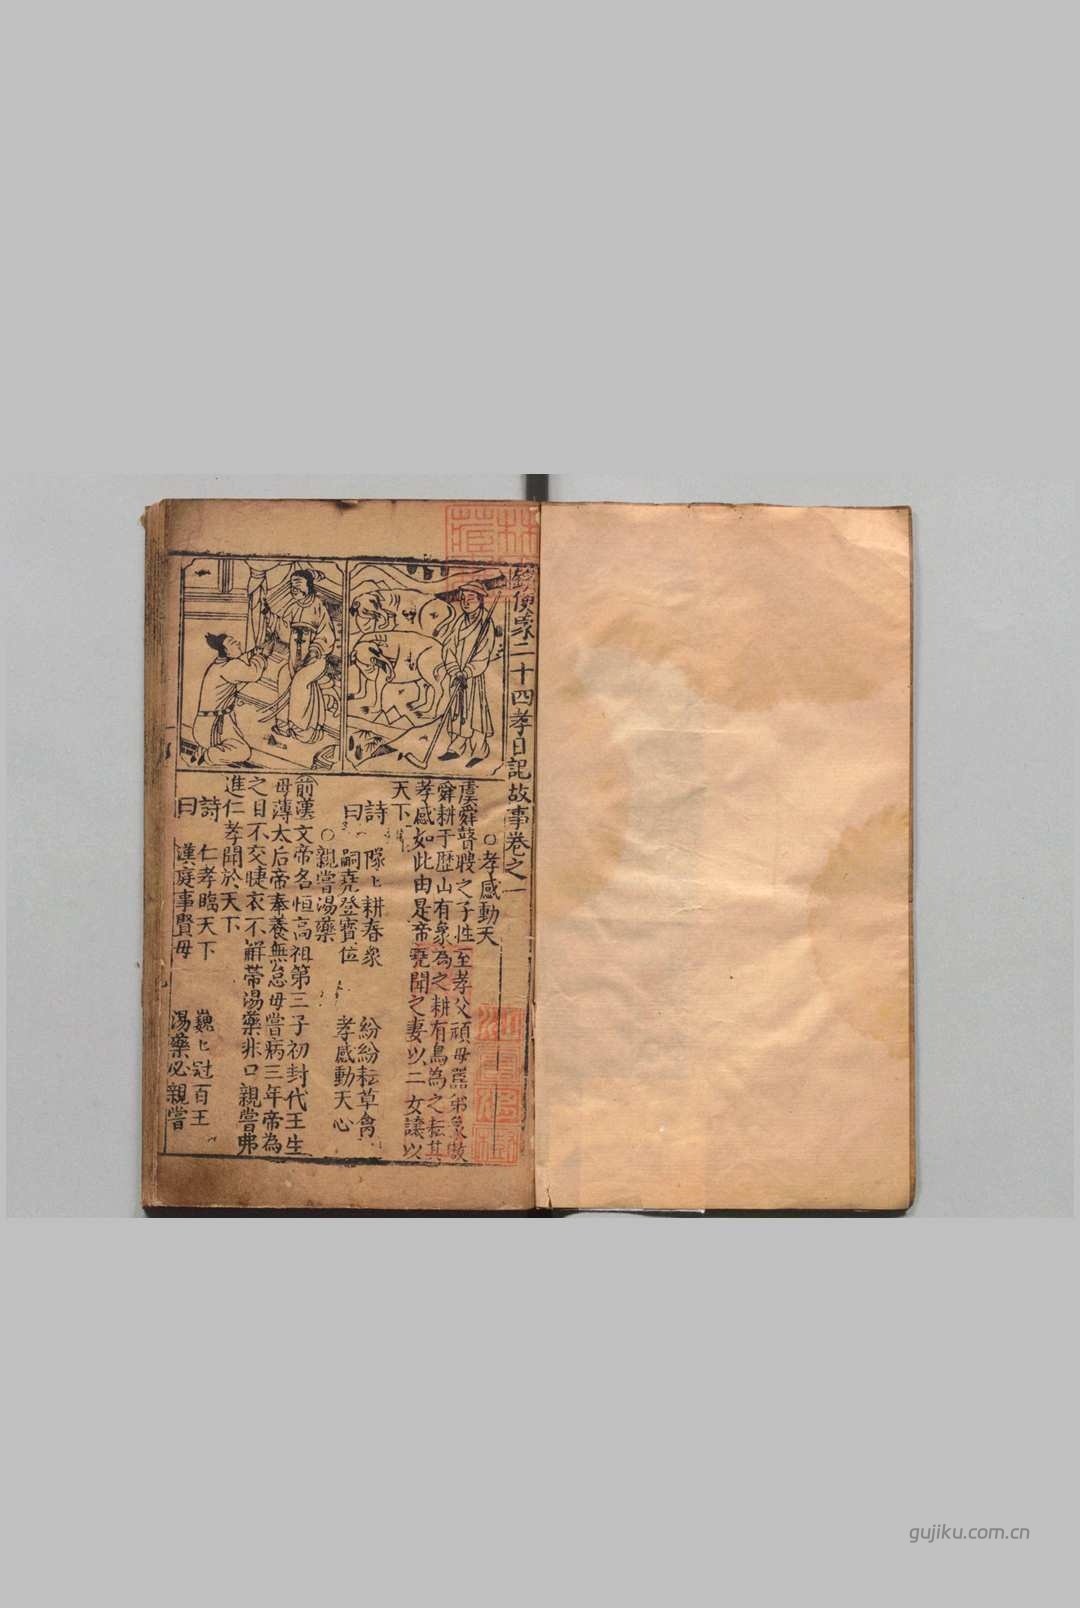 鐫便蒙二十四孝日記故事卷之一
○孝感動天
虞舜瞽聘之子性至孝父頑母嚚弟象傲
舜耕于歷山有象為之耕有鳥為之耘其
孝感如此由是帝堯聞之妻以二女讓以
天下
詩 隊匕耕春象 紛紛耘草禽
曰 嗣堯登寶位 孝感動天心
○親嘗湯藥
前漢文帝名恒高祖第三子初封代王生
母薄太后帝奉養無怠母嘗病三年帝為
之目不交睫衣不觧帶湯藥非口親嘗弗
進仁孝聞於天下
詩 仁孝臨天下 巍匕冠百王
曰 漢庭事賢母 湯藥必親嘗
gujiku.com.cn